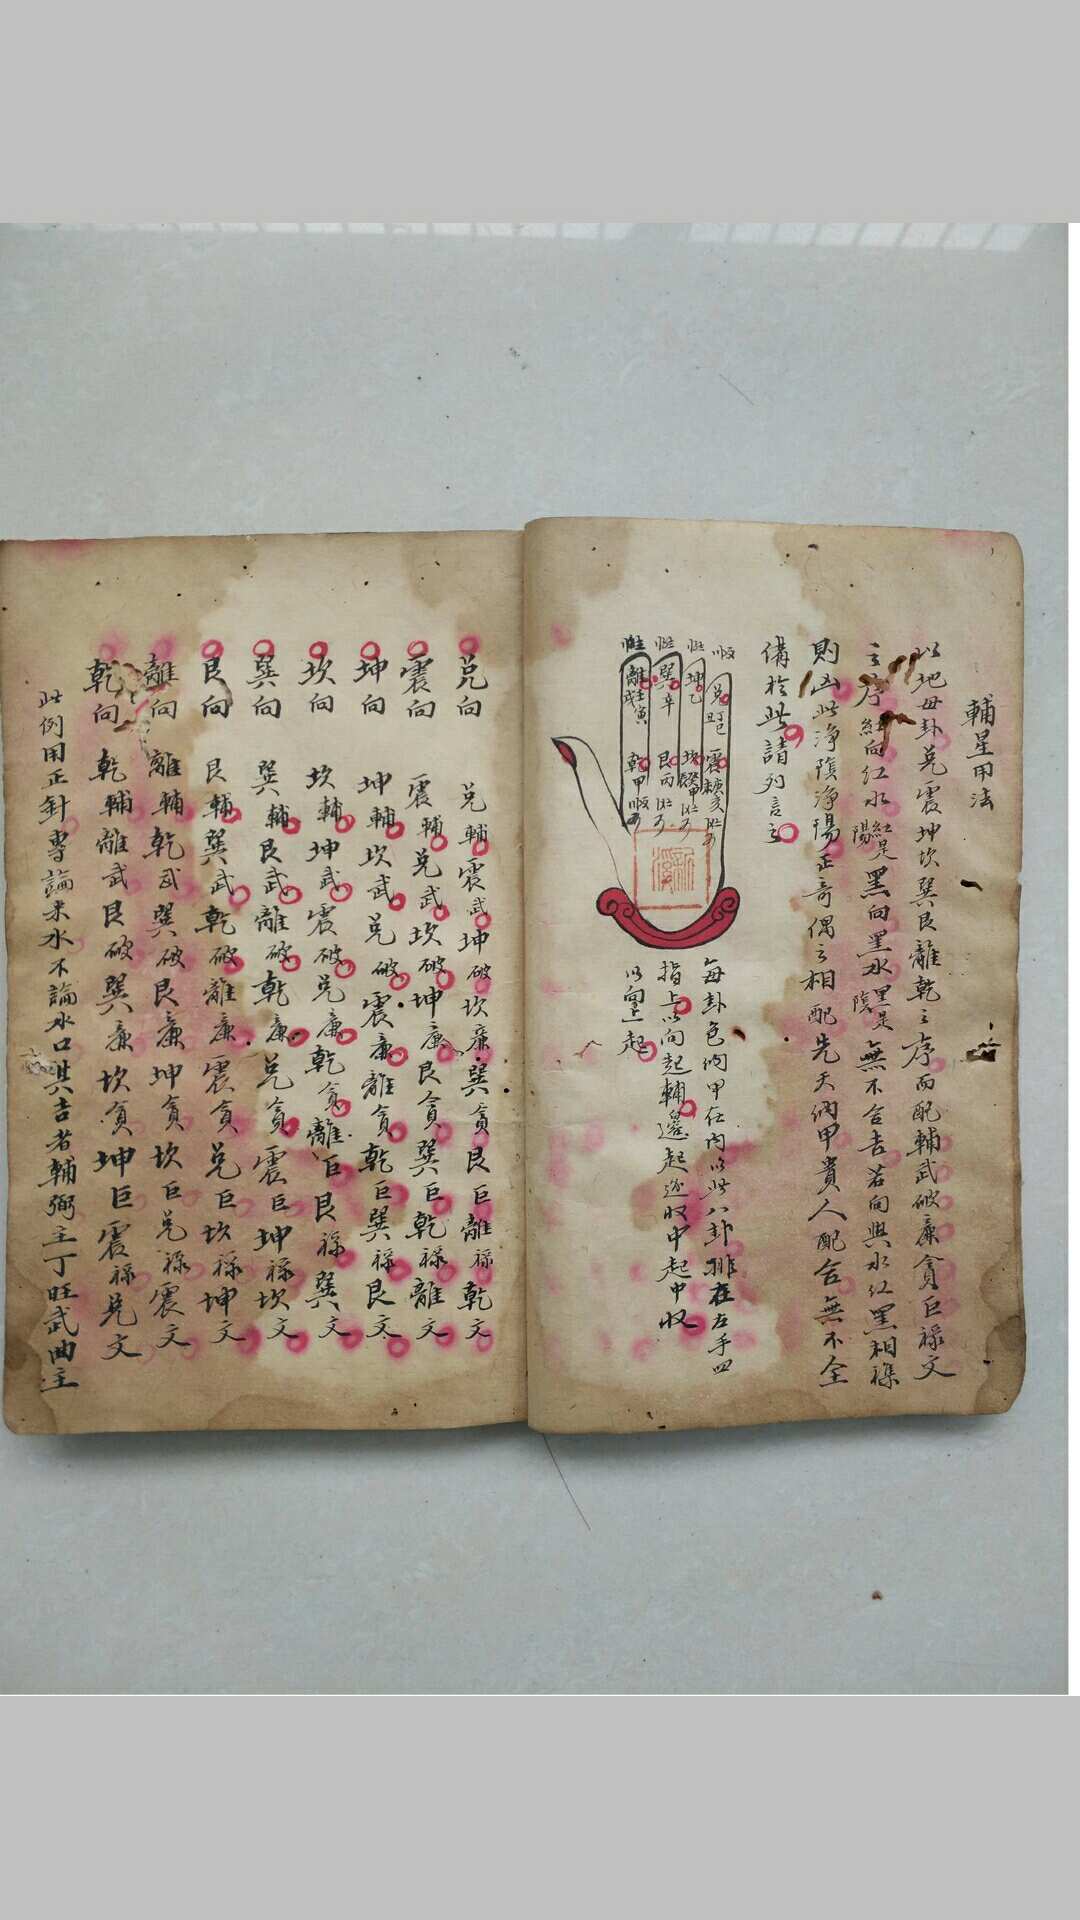 輔星用法
以地母卦兌震坤坎巽艮離乾之序而配輔武破廉貪巨祿文
之序 紅向紅水 紅是陽 黑向黑水 黑是陰 無不合吉若向與水紅黑相襍
則凶此淨陰淨陽正奇偶之相配先天納甲貴人配合無不全
備於此請列言之
順 兌丁巳丑 震庚亥未
坤乙 坎癸申辰
巽辛 艮丙
離壬寅戌 乾甲順
新溪
每卦包納甲在內以此八卦排在左手四
指上以向起輔邊起邊收中起中收
以皇上起
兌向 兌輔震武坤破坎廉巽貪艮巨離祿乾文
震向 震輔兌武坎破坤廉艮貪巽巨乾祿離文
坤向 坤輔坎武兌破震廉離貪乾巨巽祿艮文
坎向 坎輔坤武震破兌廉乾貪離巨艮祿巽文
巽向 巽輔艮武離破乾廉兌貪震巨坤祿坎文
艮向 艮輔巽武乾破離廉震貪兌巨坎祿坤文
離向 離輔乾武巽破艮廉坤貪坎巨兌祿震文
乾向 乾輔離武艮破巽廉坎貪坤巨震祿兌文
此例用正針專論來水不論水口其吉者輔弼主丁旺武曲主